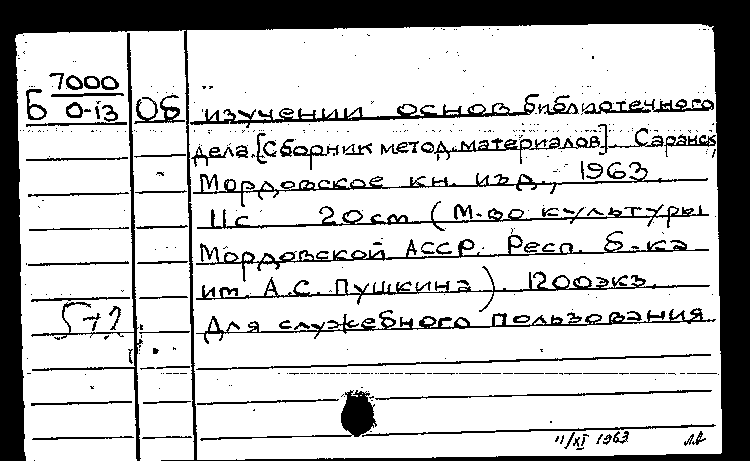 7000
Б О-13 Об изучении основ библиотечного
дела. [Сборник метод. материалов]. Саранск,
Мордовское кн. изд., 1963.
11с 20 см (М-во культуры
Мордовской АССР. Респ. б-ка
им. А.С. Пушкина). 1200 экз.
Для служебного пользования
11/XI 1963